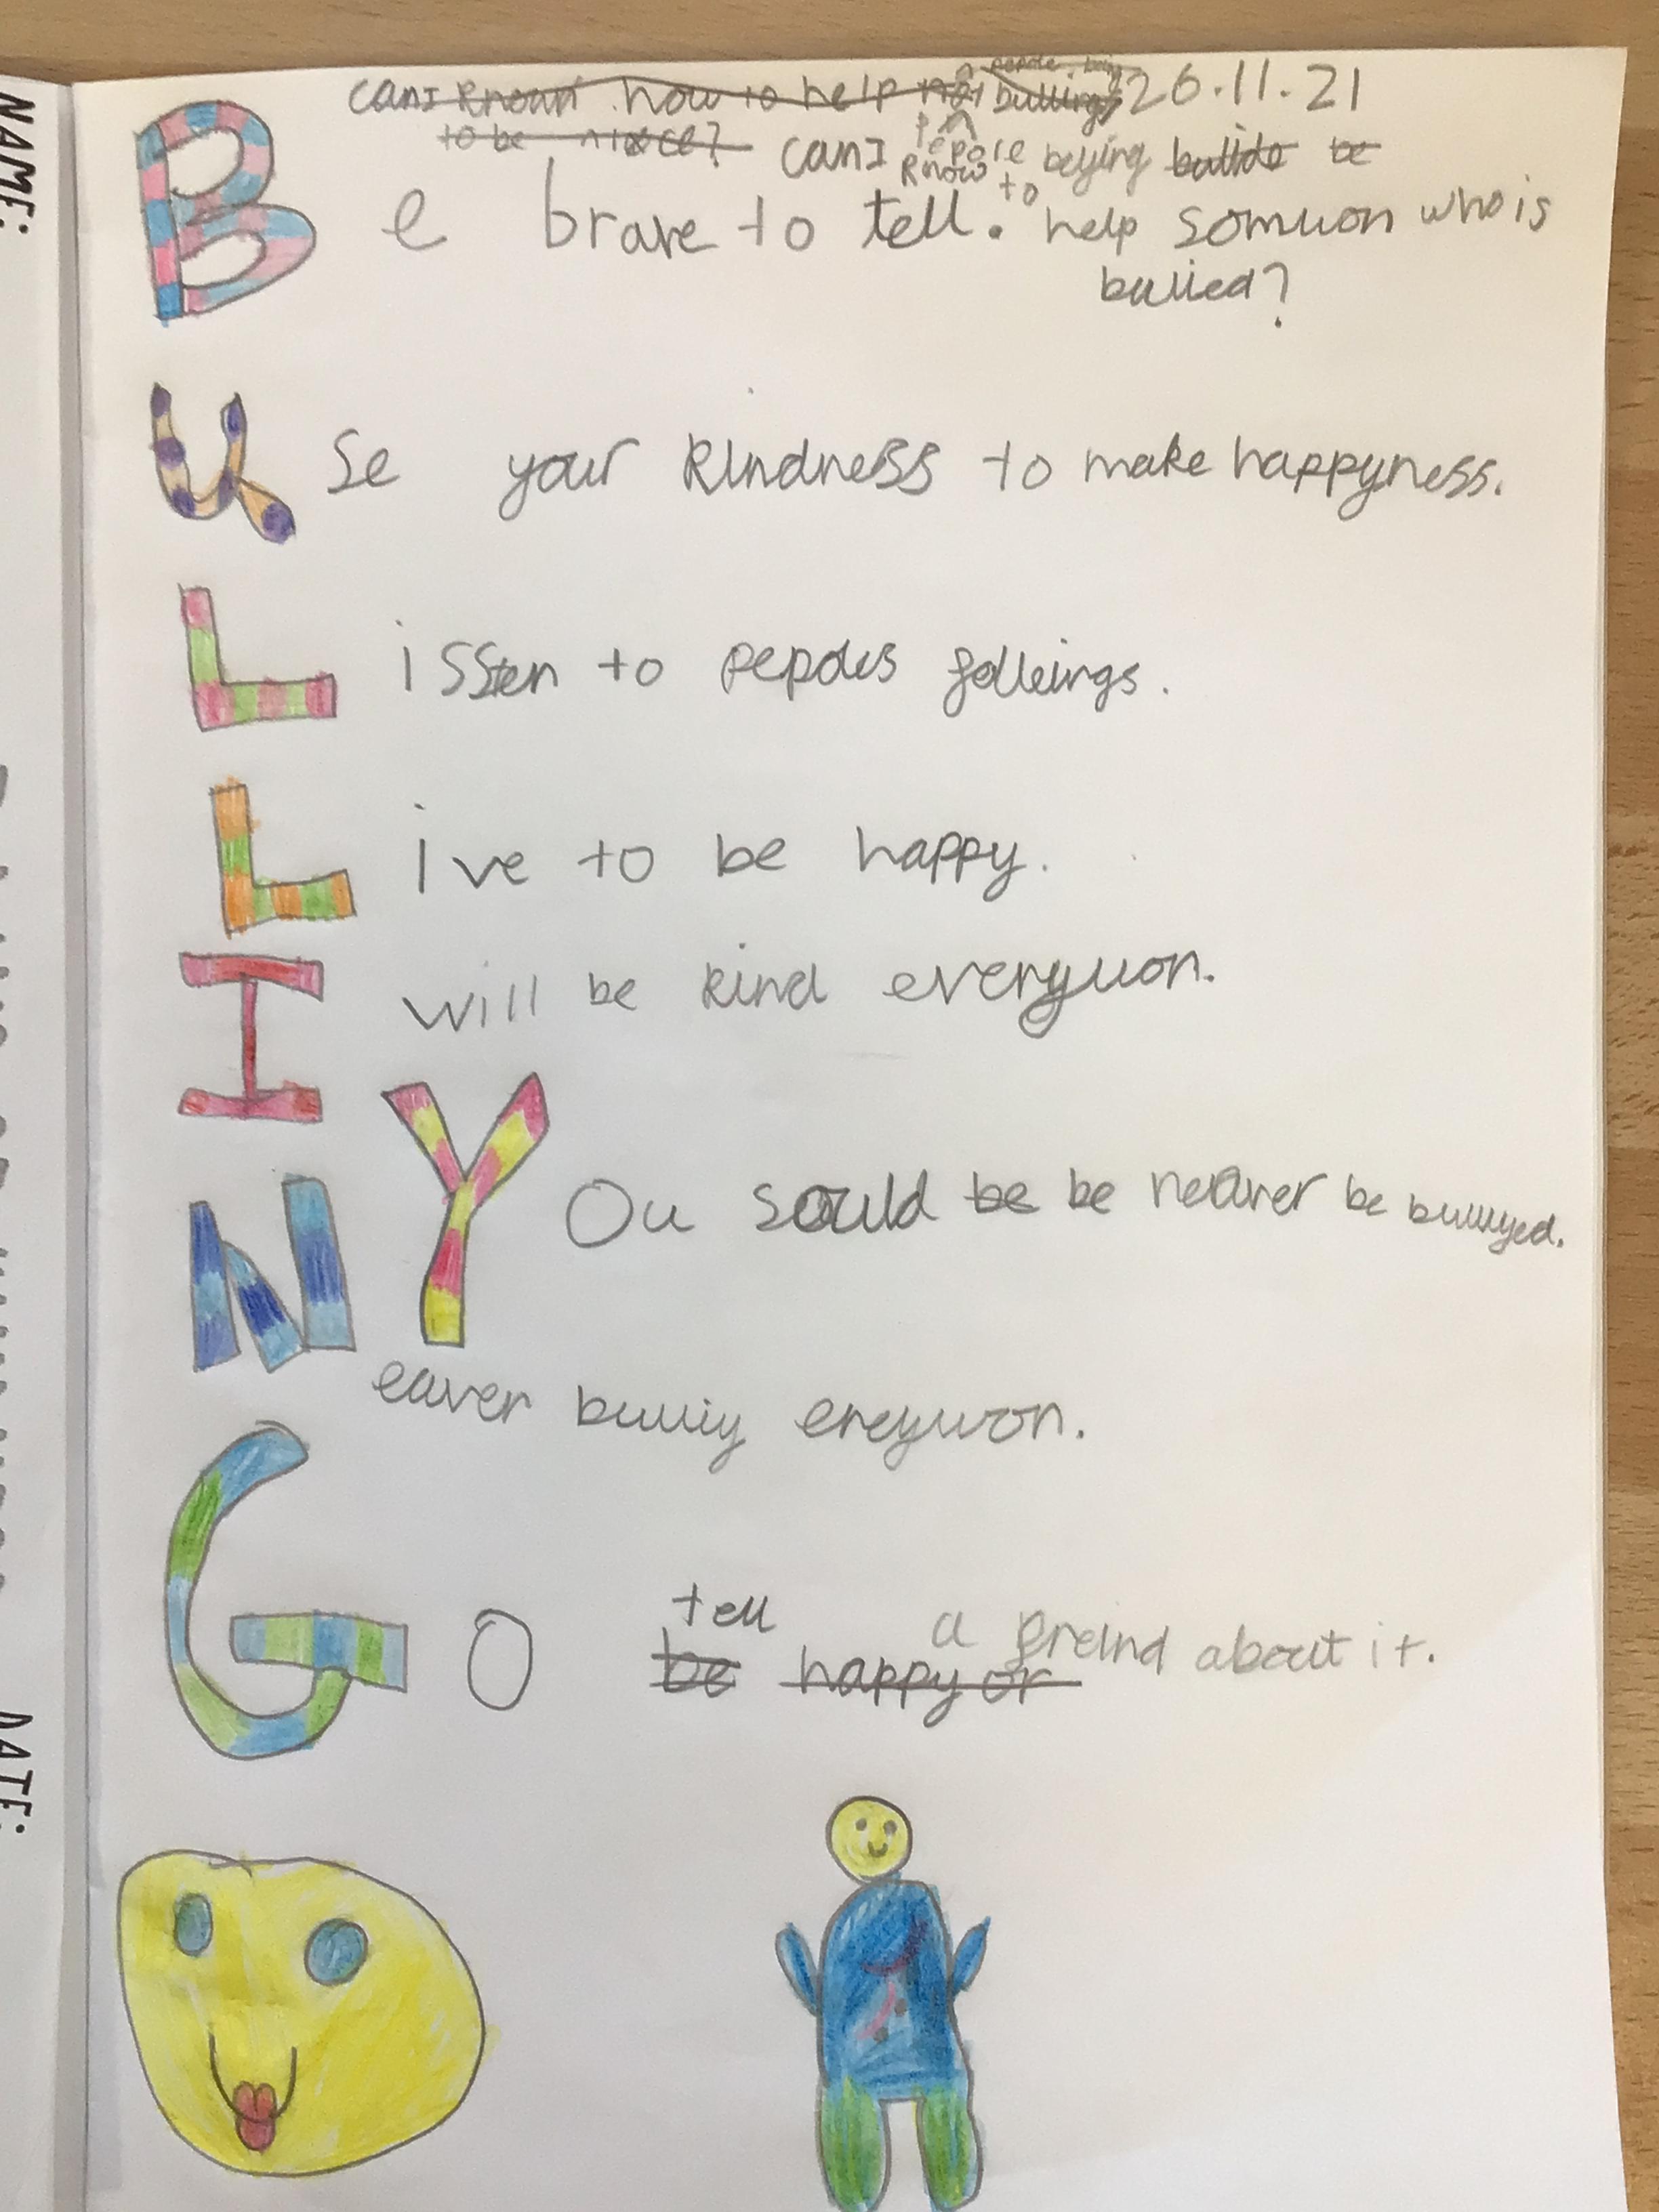 NAME:
DATE:
canI known how to help not bulling 26.11.21
to be nixce? canI
know to help somuon who is
bullied?
Be brave to tell.
Use your kindness to make happyness.
Lissten to pepoles
Live to be happy.
I will be kind everyuon.
You sould be be neaver be bulllyed.
Neaver bulliy ereywon.
Go tell a freind about it.
be happy or